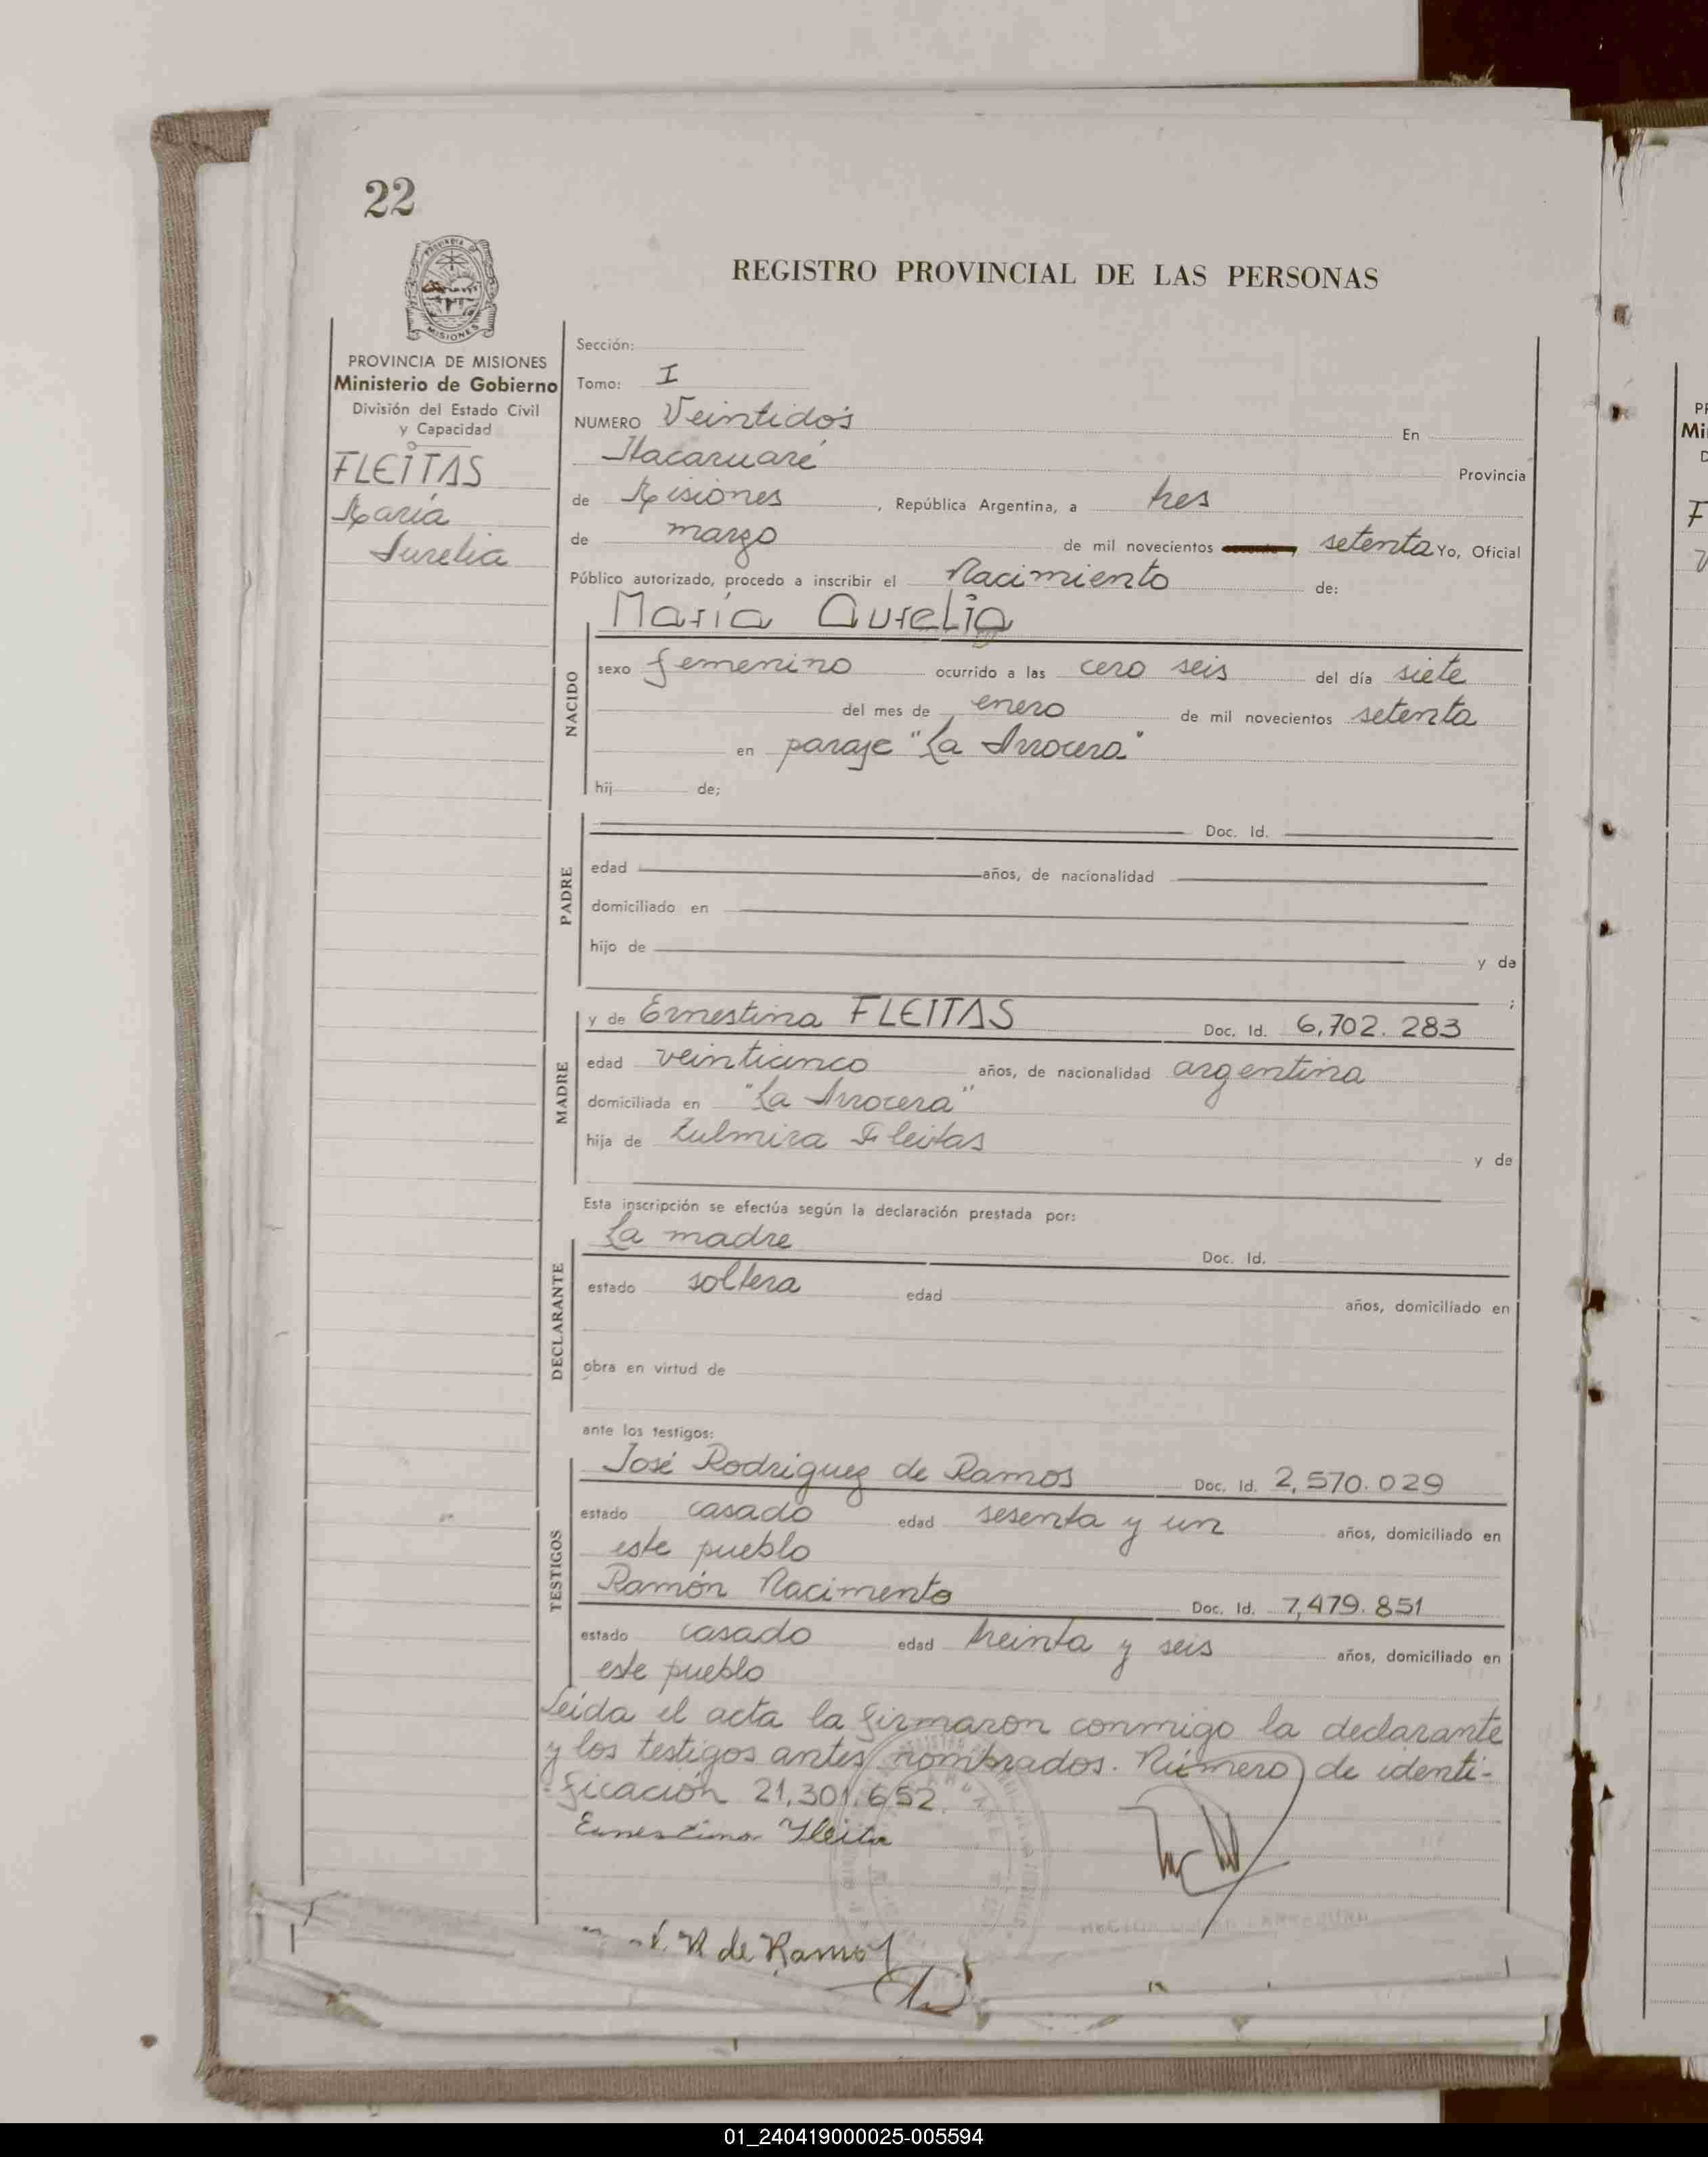 22
REGISTRO PROVINCIAL DE LAS PERSONAS
PROVINCIA DE MISIONES
Ministerio de Gobierno
División del Estado Civil
y Capacidad
FLEITAS
María
Aurelia
Sección:
Tomo: I
NUMERO Veintidós En
Itacaruaré Provincia
de Misiones , República Argentina, a tres
de marzo de mil novecientos setenta Yo, Oficial
Público autorizado, procedo a inscribir el Nacimiento de:
María Aurelia
NACIDO
sexo femenino ocurrido a las cero seis del día siete
del mes de enero de mil novecientos setenta
en paraje "La Arrocera"
hij de;
PADRE
Doc. Id.
edad años, de nacionalidad
domiciliado en
hijo de y de
;
MADRE
y de Ernestina FLEITAS Doc. Id. 6,702.283
edad veinticinco años, de nacionalidad argentina
domiciliada en "La Arrocera"
hija de Zulmira Fleitas y de
Esta inscripción se efectúa según la declaración prestada por:
DECLARANTE
La madre Doc. Id.
estado soltera edad años, domiciliado en
obra en virtud de
ante los testigos:
TESTIGOS
José Rodriguez de Ramos Doc. Id. 2,570.029
estado casado edad sesenta y un años, domiciliado en
este pueblo
Ramón Nacimento Doc. Id. 7,479.851
estado casado edad treinta y seis años, domiciliado en
este pueblo
Leída el acta la firmaron conmigo la declarante
y los testigos antes nombrados. Número de identi-
ficación 21,301.652.
Ernestina Fleita
R de Ramos
01_240419000025-005594